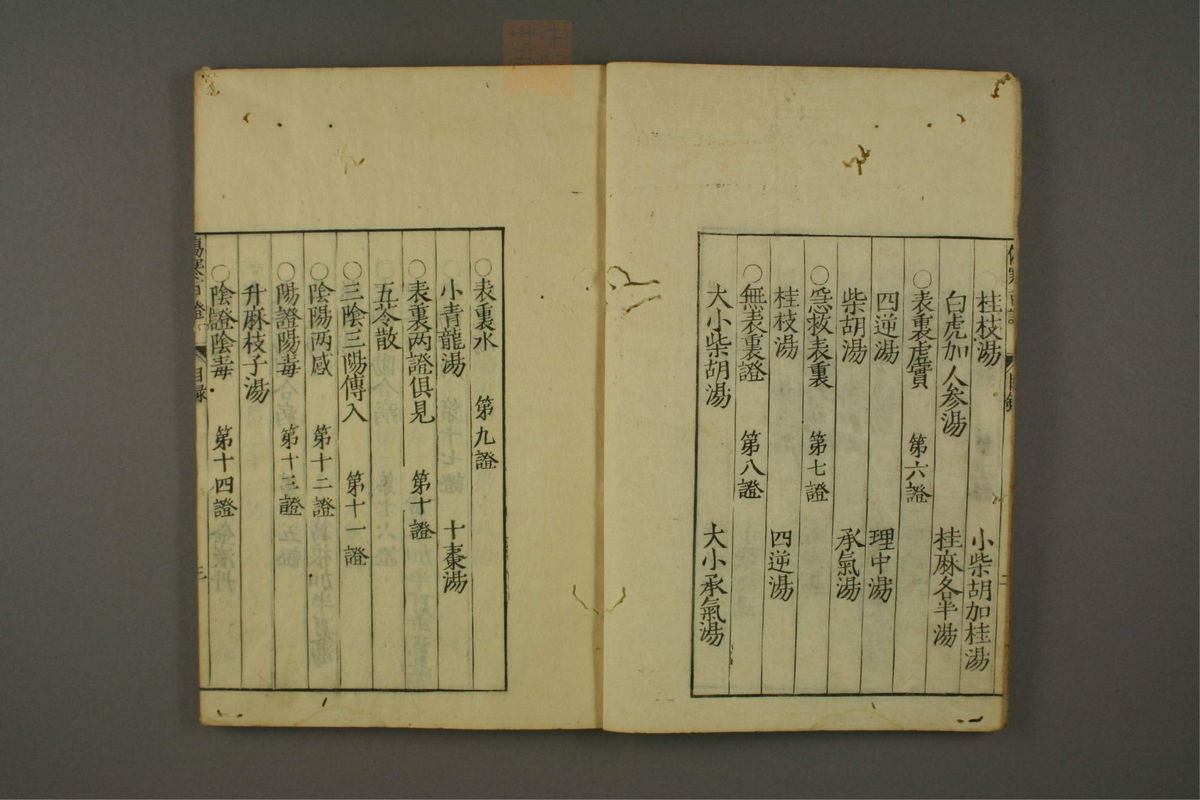 桂枝湯　小柴胡加桂湯
白虎加人参湯　桂麻各半湯
○表裏虚實　第六證
四逆湯　理中湯
柴胡湯　承氣湯
○急救表裏　第七證
桂枝湯　四逆湯
○無表裏證　第八證
大小柴胡湯　大小承氣湯
○表裏水　第九證
小青龍湯　十棗湯
○表裏两證俱見　第十證
五苓散
○三陰三陽傳入　第十一證
○陰陽两感　第十二證
○陽證陽毒　第十三證
升麻枝子湯
○陰證陰毒　第十四證
目録